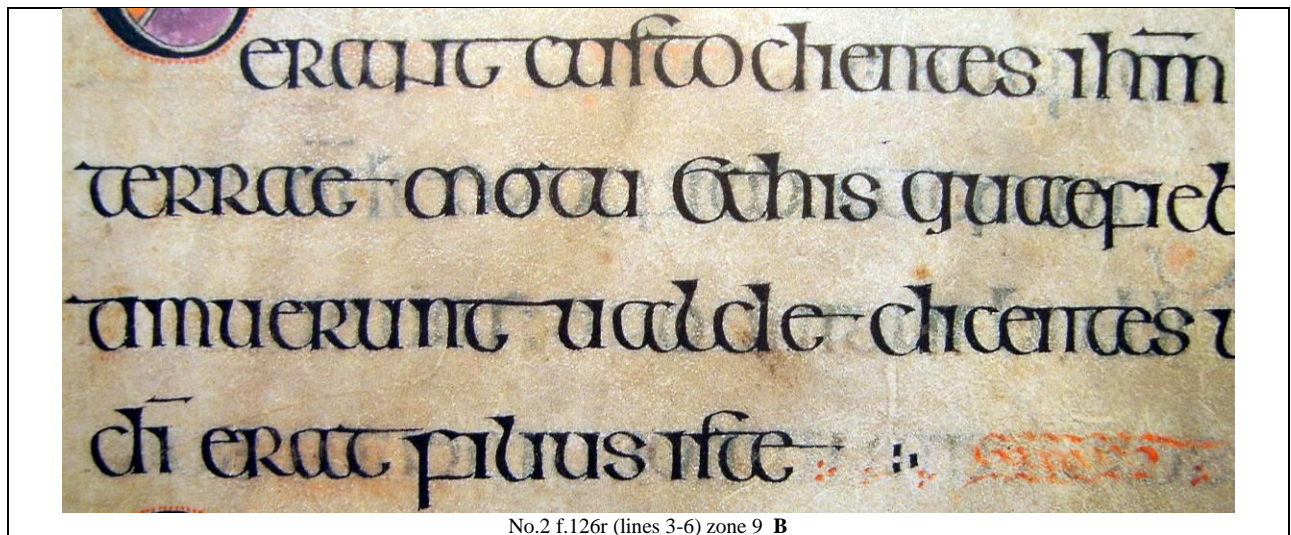 erant custodientes ihm̄
terrae motu et his quaefieb
timuerunt ualde dicentes u
dī erat filius iste
No.2 f.126r (lines 3-6) zone 9 B